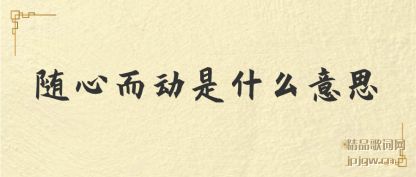 随心而动是什么意思
精品歌词网
jpjgw.cn